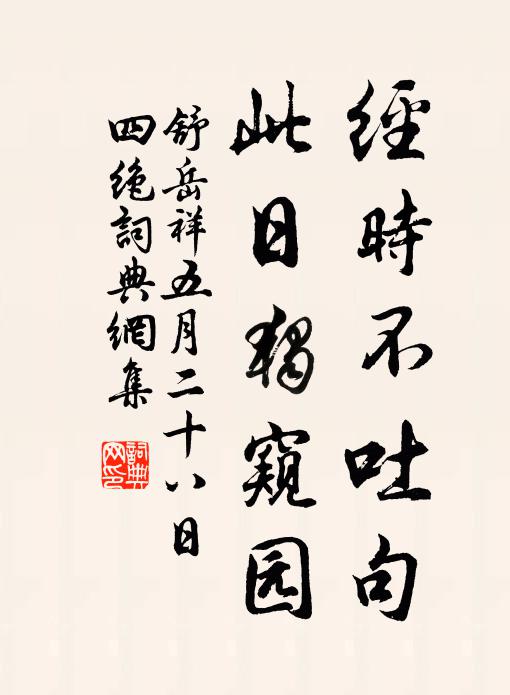 經時不吐句
此日獨窺园
舒岳祥五月二十八日
四绝詞典網集
詞典网印